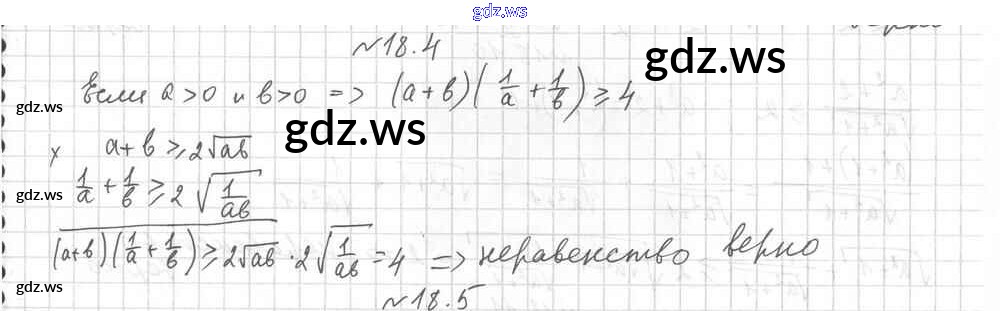 gdz.ws
№18.4
gdz.ws
Если a > 0 и b > 0 => (a + b)(1/a + 1/b) ≥ 4
gdz.ws
gdz.ws
× a + b ≥ 2√ab
1/a + 1/b ≥ 2√(1/ab)
gdz.ws
(a+b)(1/a + 1/b) ≥ 2√ab · 2√(1/ab) = 4 => неравенство верно
gdz.ws
№18.5